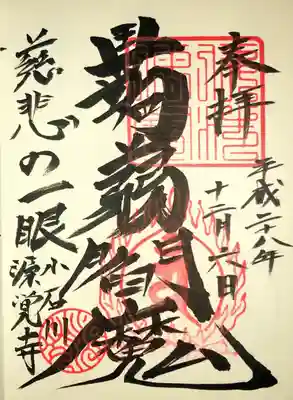 奉拝
平成二十八年
十二月一日
蒟蒻閻魔
慈悲の一眼
小石川
源覚寺